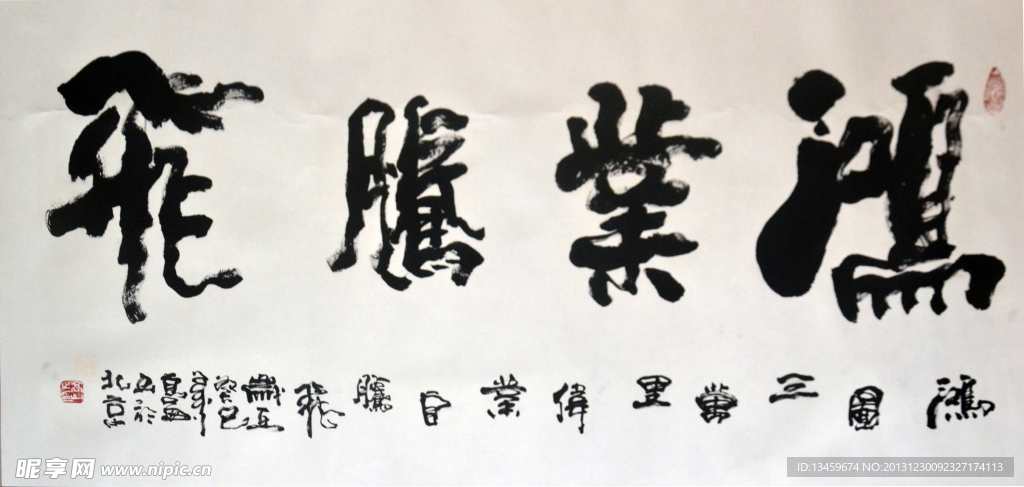 鴻業騰飛
鴻圖三萬里偉業自騰飛
歲在癸巳
北京
昵享网 www.nipic.cn
ID:13459674 NO:20131230092327174113